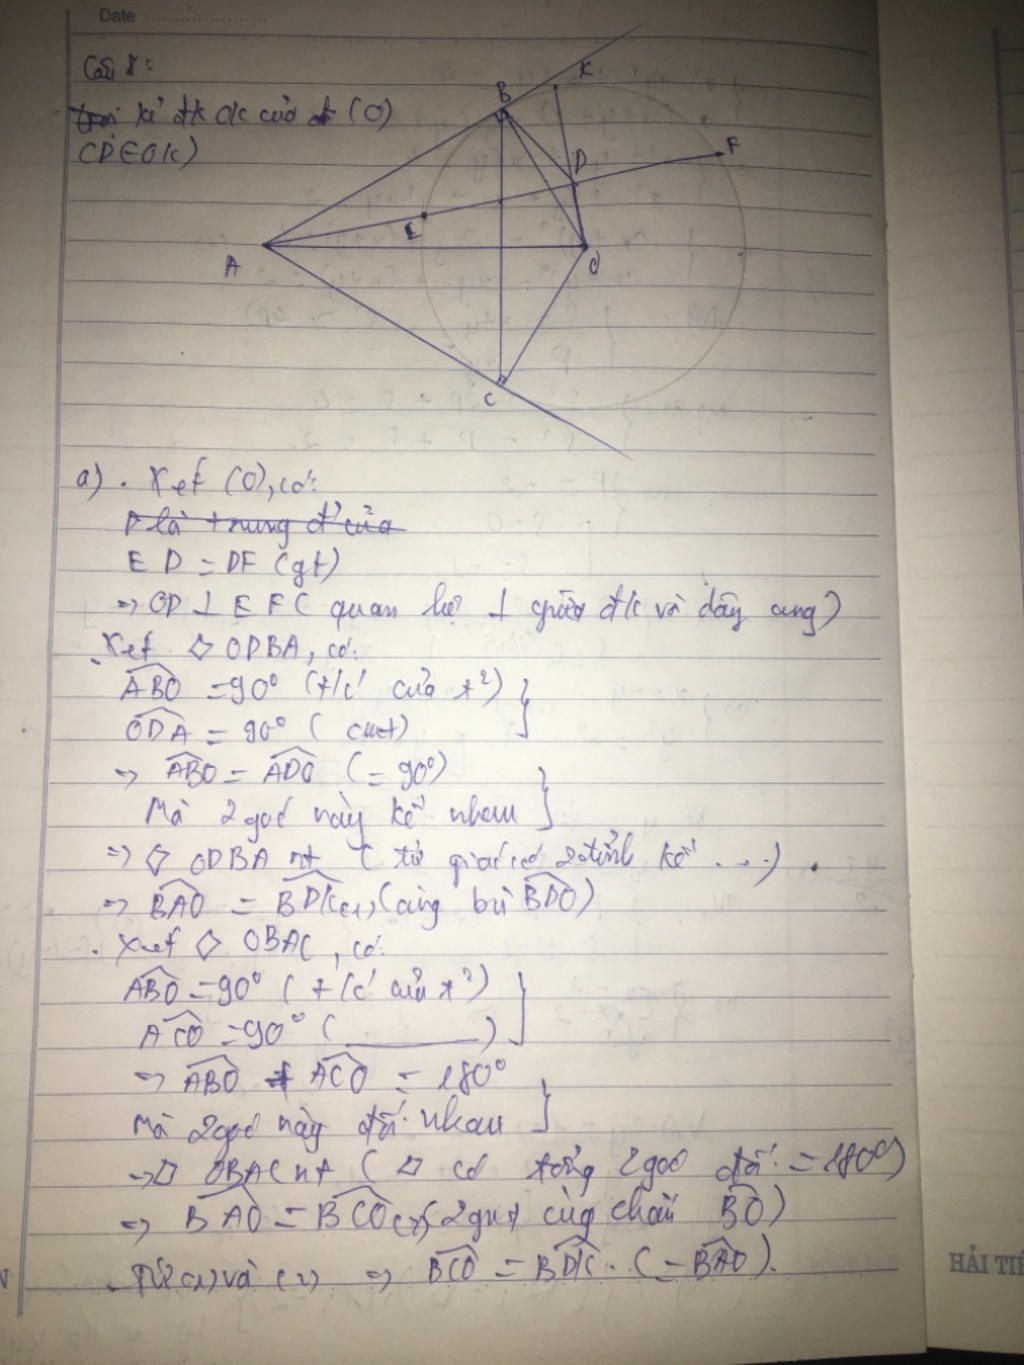 Date
Câu 8:
kẻ đk OK của (O)
(D∈OK)
B
K
D
F
E
A
O
C
a) . Xét (O), có:
D là trung đ' của
ED = DF (gt)
=> OD ⊥ EF (quan hệ ⊥ giữa đk và dây cung)
. Xét ◇ ODBA, có:
ABO = 90° (t/c' của t²)
ODA = 90° ( cmt)
=> ABO = ADO (= 90°)
Mà 2 góc này kề nhau
=> ◇ ODBA nt ( tứ giác có 2 đỉnh kề ...)
=> BAO = BDK (1) (cùng bù BDO)
. Xét ◇ OBAC, có:
ABO = 90° ( t/c' của t²)
ACO = 90° ( )
=> ABO + ACO = 180°
Mà 2 góc này đối nhau
=> ◇ OBAC nt ( ◇ có tổng 2 góc đối = 180°)
=> BAO = BCO (2) (2 gnt cùng chắn BO)
. Từ (1) và (2) => BCO = BDK. (= BAO).
HẢI TIẾ
N